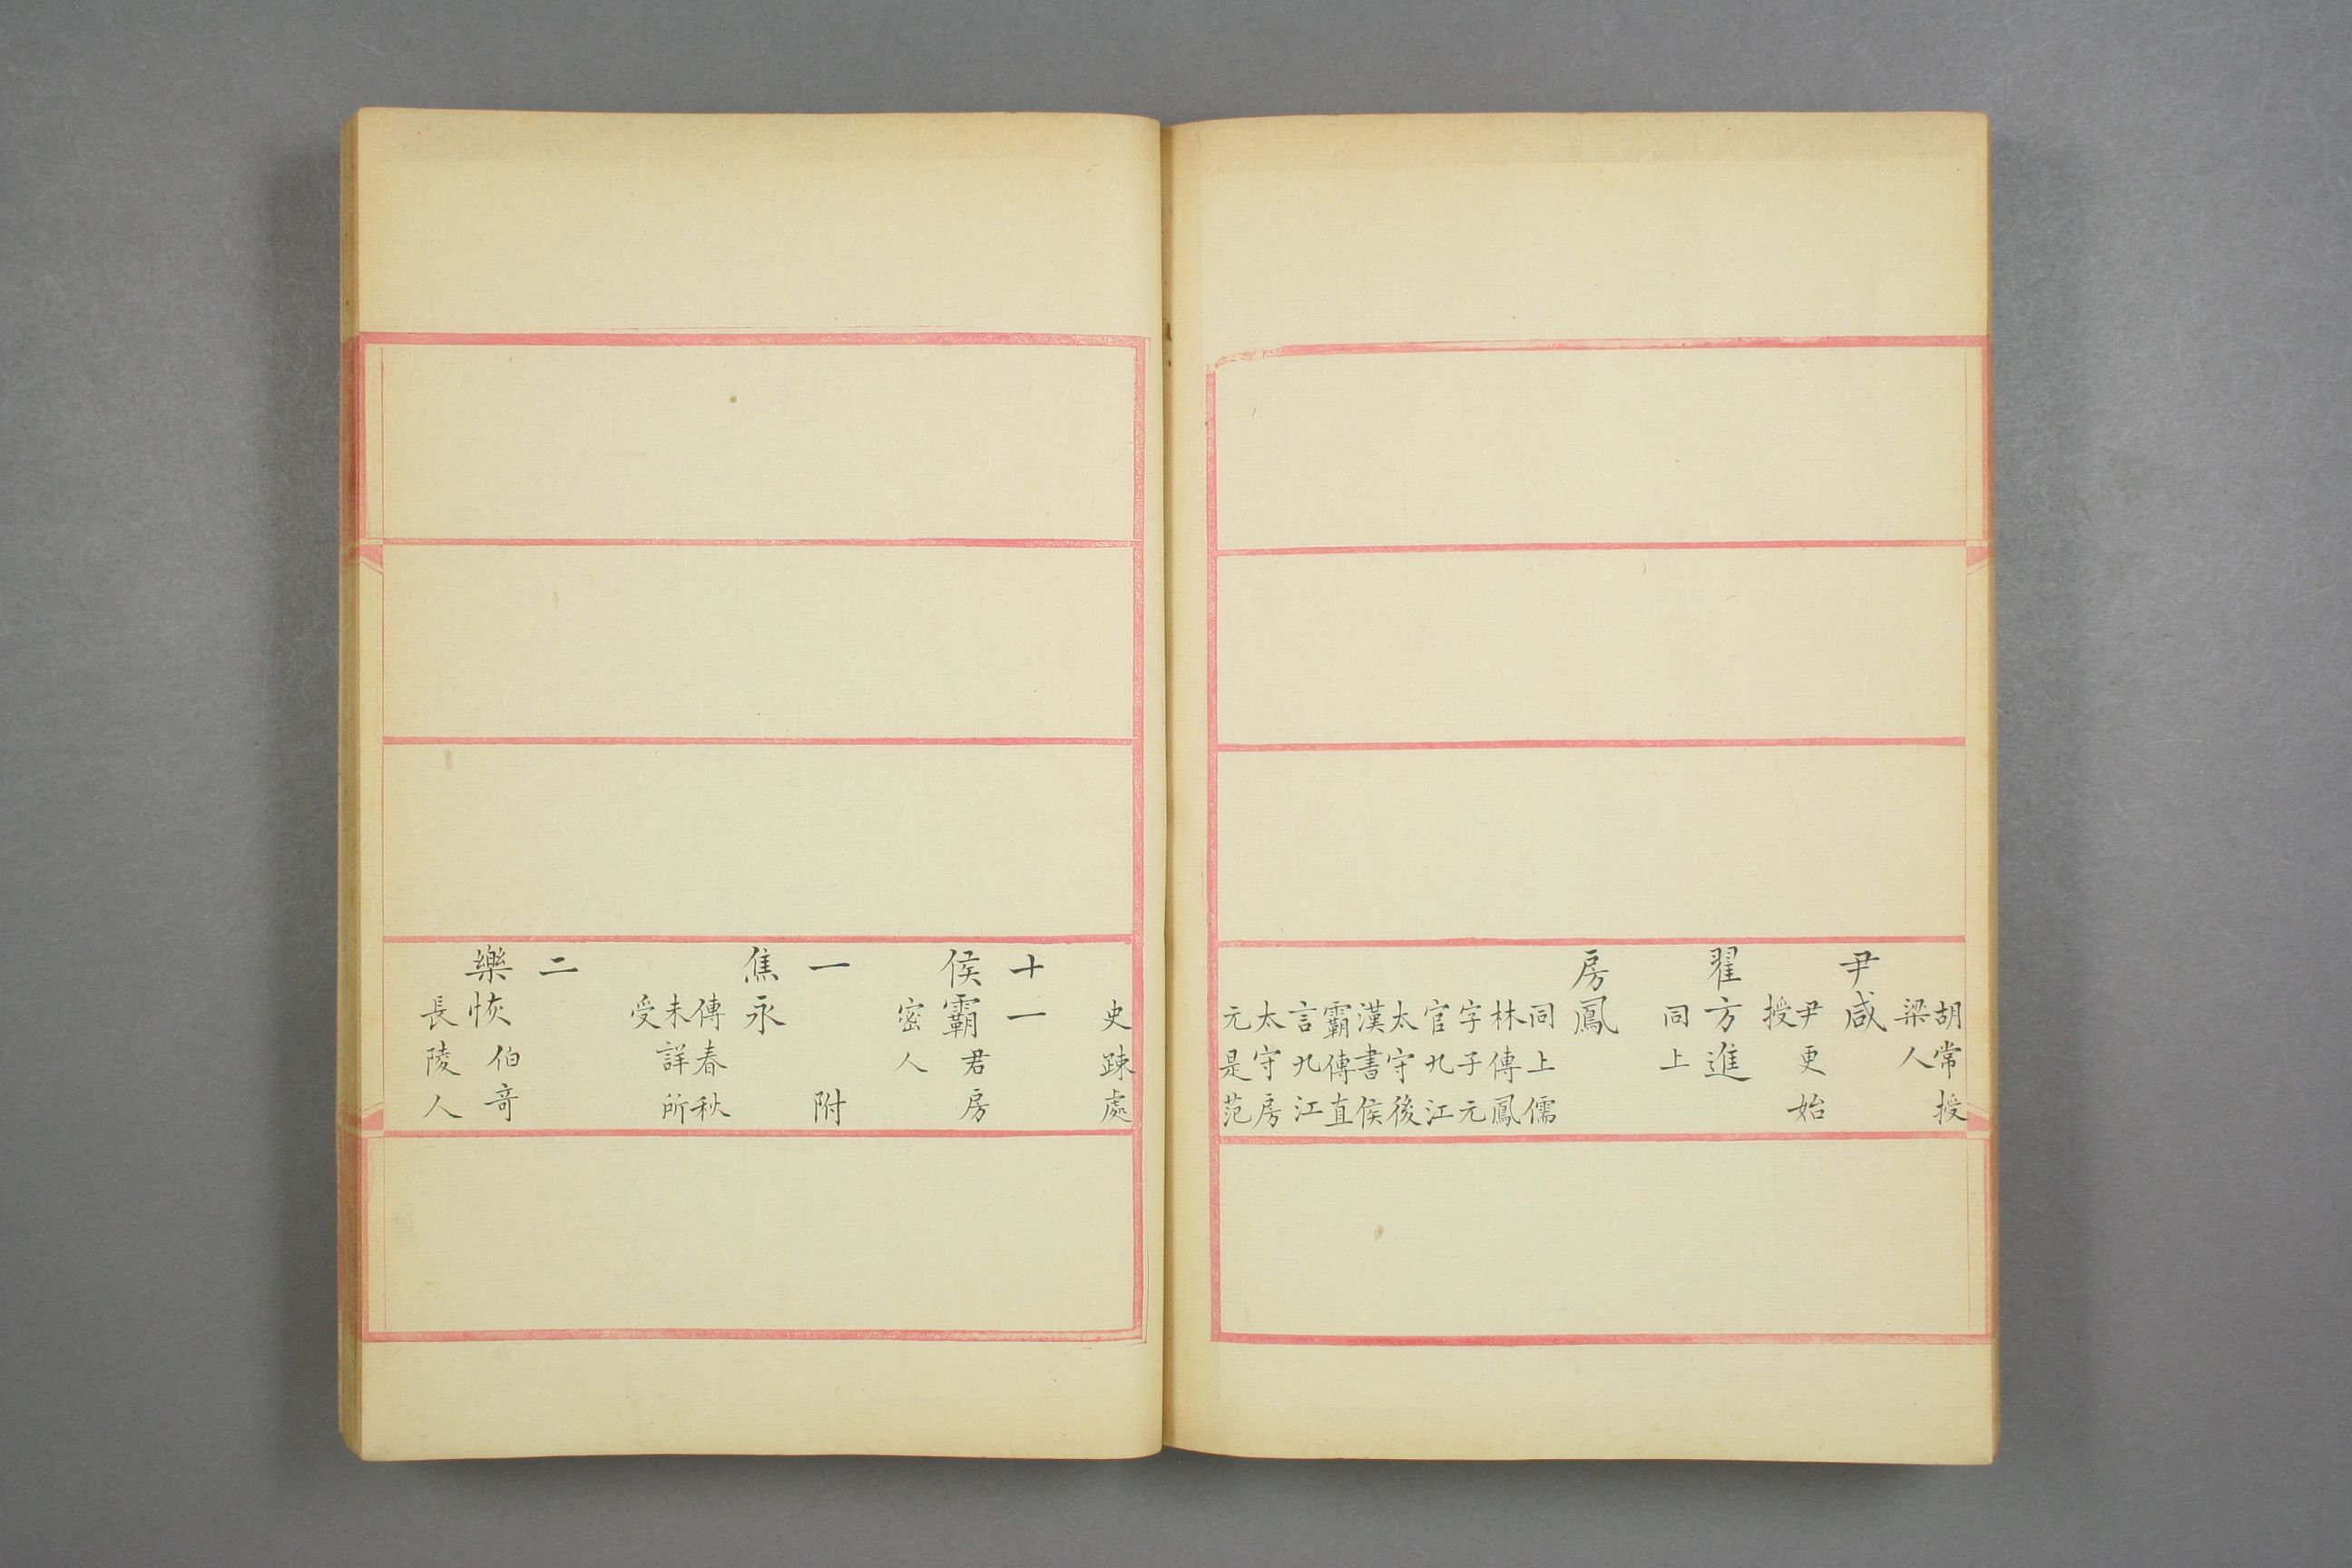 胡常授
梁人
尹咸
尹更始
授
翟方進
同上
房鳳
同上儒
林傳鳳
字子元
官九江
太守後
漢書侯
霸傳直
言九江
太守房
元是范
史踈處
十一
侯霸君房
密人
一附
焦永
傳春秋
未詳所
受
二
樂恢伯奇
長陵人